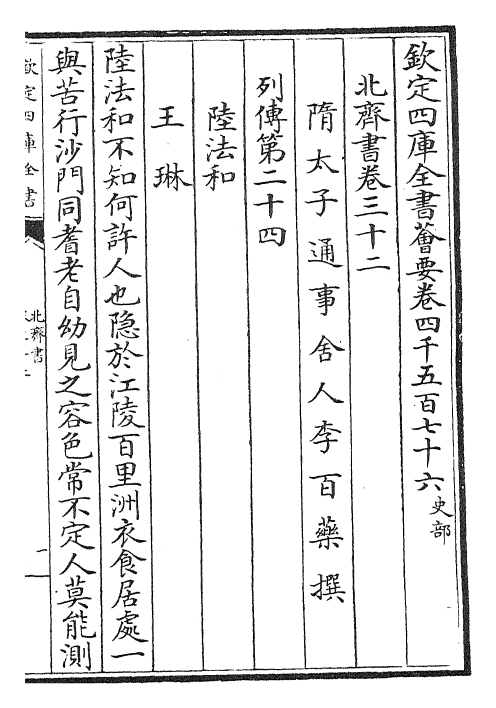 欽定四庫全書薈要卷四千五百七十六史部
北齊書卷三十二
隋太子通事舍人李百藥撰
列傳第二十四
陸法和
王琳
陸法和不知何許人也隐於江陵百里洲衣食居處一
與苦行沙門同耆老自幼見之容色常不定人莫能測
欽定四庫全書
北齊書